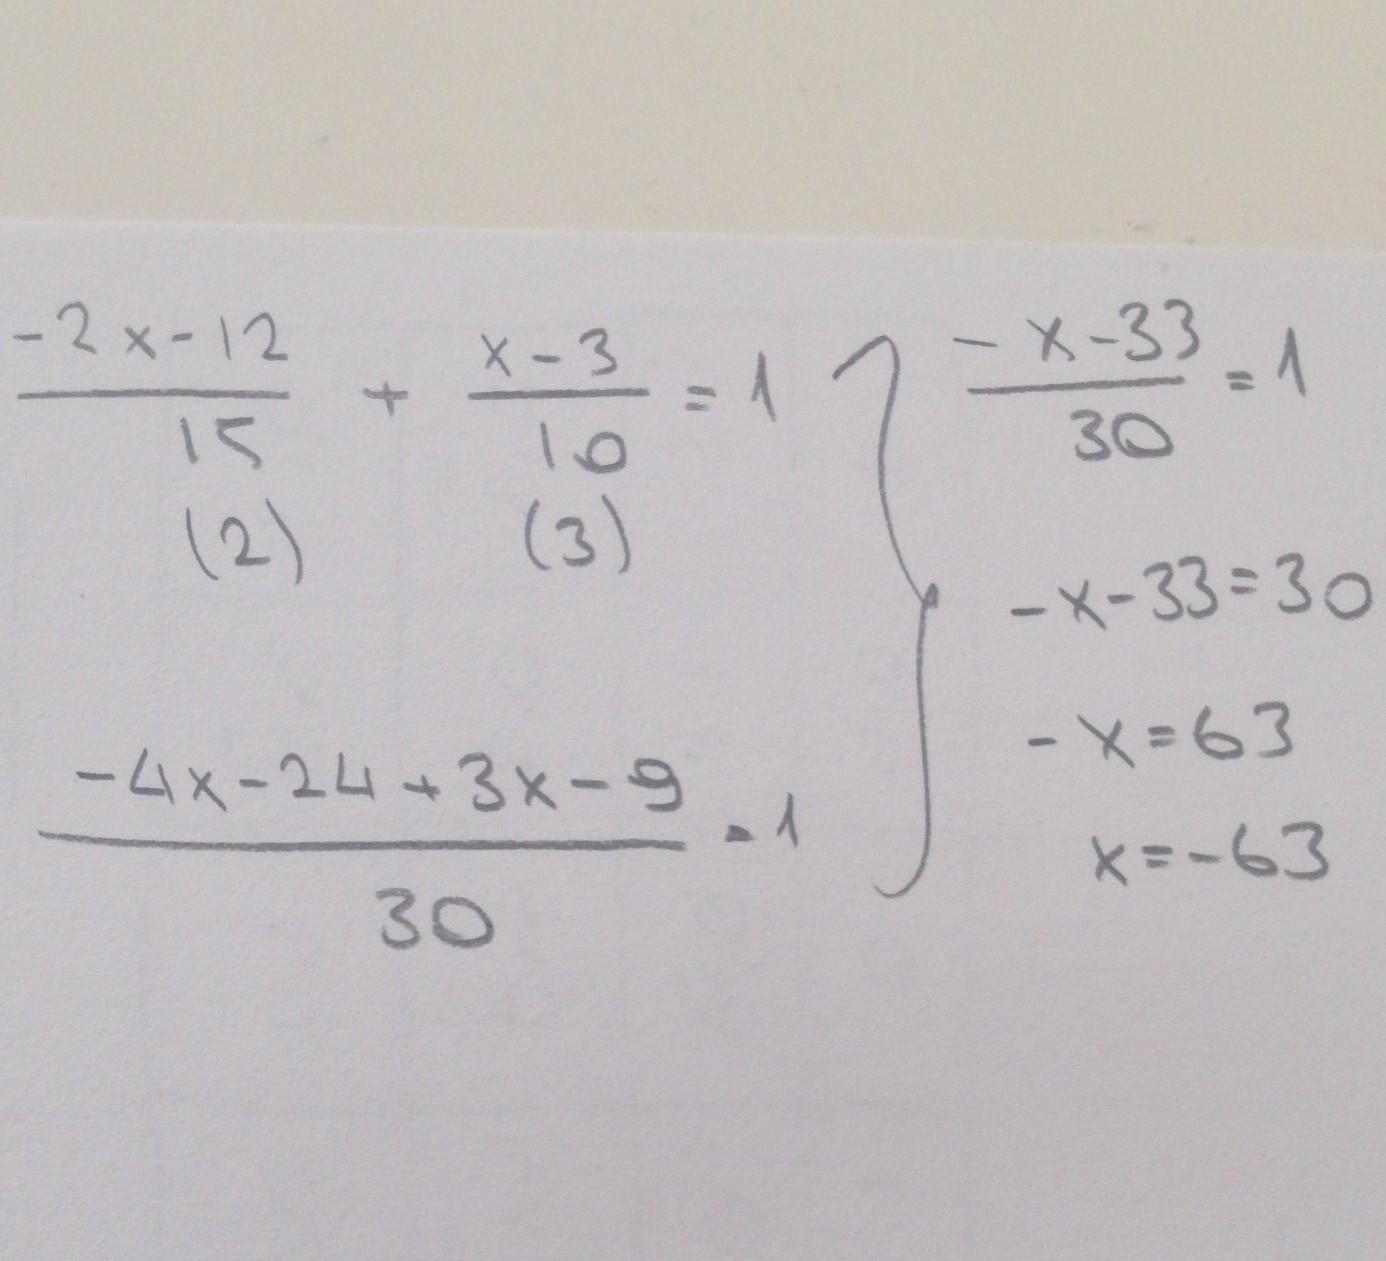 -2x-12 / 15 + x-3 / 10 = 1
(2) (3)
-4x-24+3x-9 / 30 = 1
-x-33 / 30 = 1
-x-33=30
-x=63
x=-63